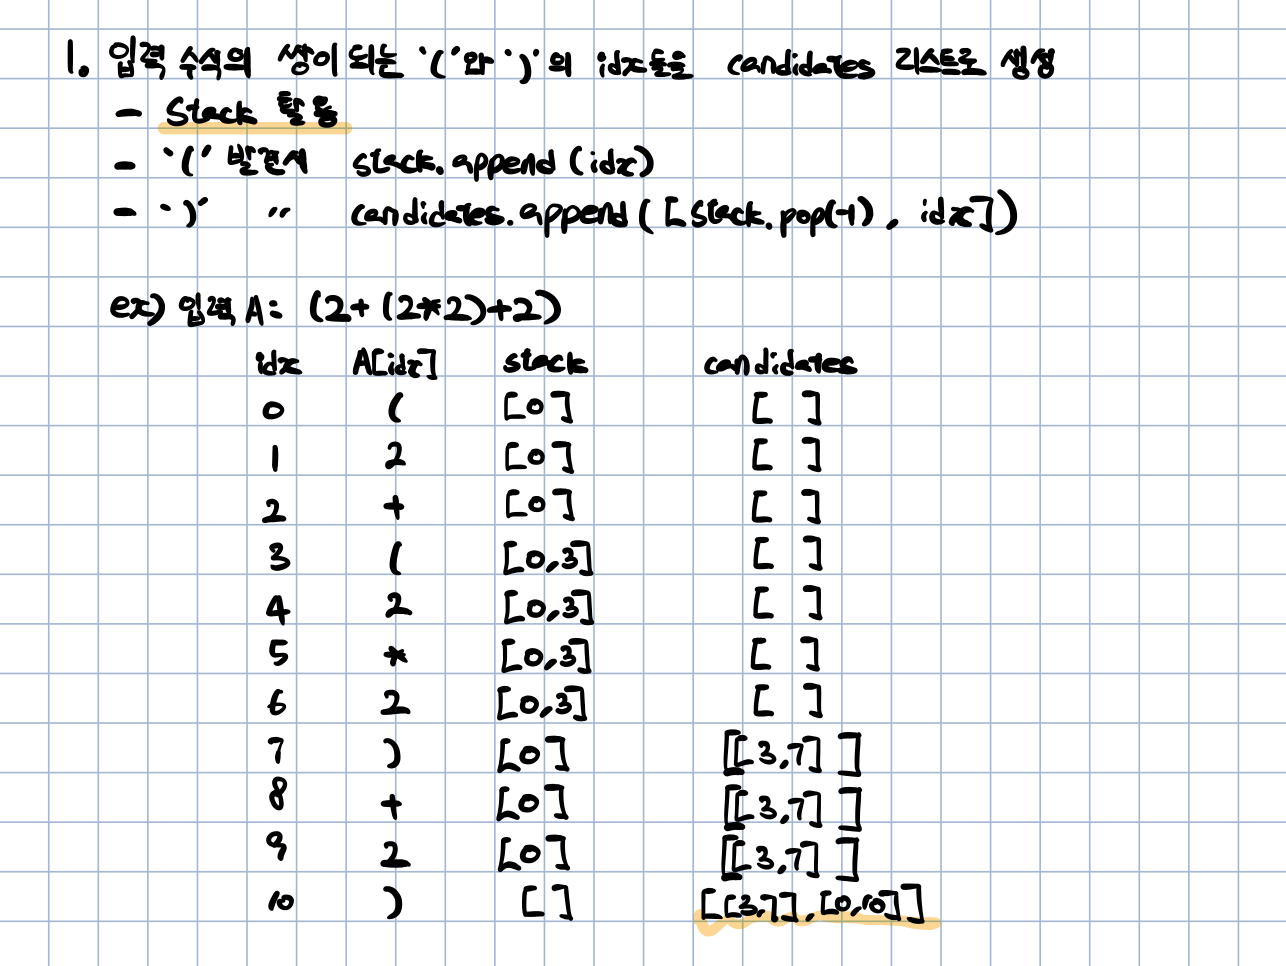 1. 입력 수식의 쌍이 되는 '('와 ')'의 idx들을 candidates 리스트로 생성
- Stack 활용
- '(' 발견시 stack.append (idx)
- ')' 〃 candidates.append ( [stack.pop(-1), idx])
ex) 입력 A: (2+(2*2)+2)
idx A[idx] stack candidates
0 ( [0] [ ]
1 2 [0] [ ]
2 + [0] [ ]
3 ( [0,3] [ ]
4 2 [0,3] [ ]
5 * [0,3] [ ]
6 2 [0,3] [ ]
7 ) [0] [[3,7] ]
8 + [0] [[3,7] ]
9 2 [0] [[3,7] ]
10 ) [ ] [[3,7],[0,10]]